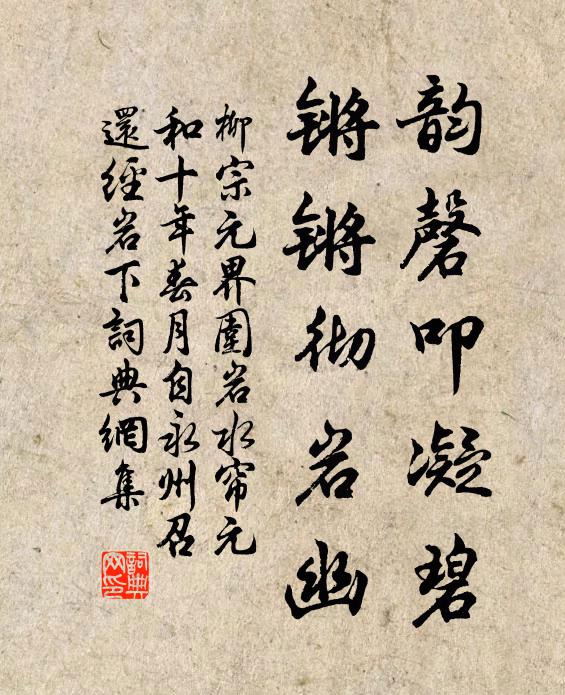 韵磬叩凝碧
锵锵彻岩幽
柳宗元界围岩水帘元
和十年春月自永州召
還經岩下詞典網集
詞典网印